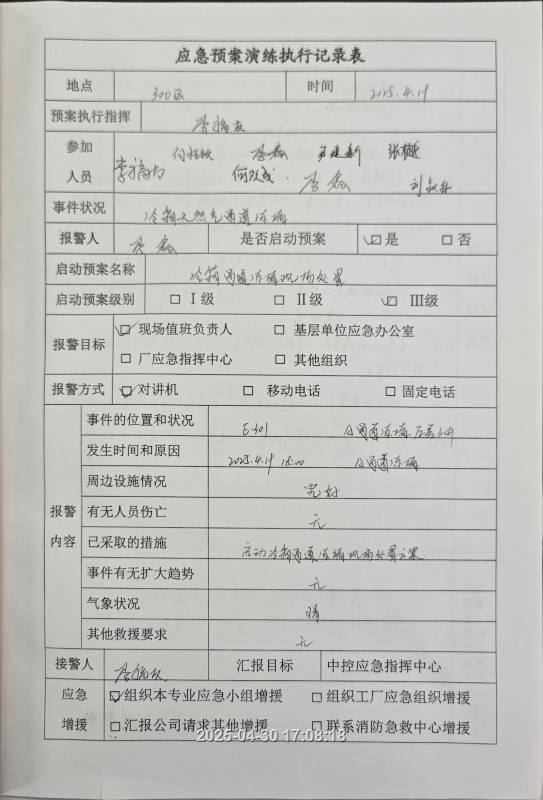 应急预案演练执行记录表
地点 300区 时间 2025.4.19
预案执行指挥 李福友
参加 李鑫 王建新
人员 李鑫
事件状况 冷箱天然气通道冻堵
报警人 李鑫 是否启动预案 ☑是 □否
启动预案名称 冷箱通道冻堵现场处置
启动预案级别 □Ⅰ级 □Ⅱ级 ☑Ⅲ级
报警目标 ☑现场值班负责人 □基层单位应急办公室
□厂应急指挥中心 □其他组织
报警方式 ☑对讲机 □移动电话 □固定电话
报警内容 事件的位置和状况 E-301 A通道冻堵 压差上升
发生时间和原因 2025.4.19 18:00 A通道冻堵
周边设施情况 完好
有无人员伤亡 无
已采取的措施 启动冷箱通道冻堵现场处置方案
事件有无扩大趋势 无
气象状况 晴
其他救援要求 无
接警人 李福友 汇报目标 中控应急指挥中心
应急 ☑组织本专业应急小组增援 □组织工厂应急组织增援
增援 □汇报公司请求其他增援 □联系消防急救中心增援
2025-04-30 17:08:18